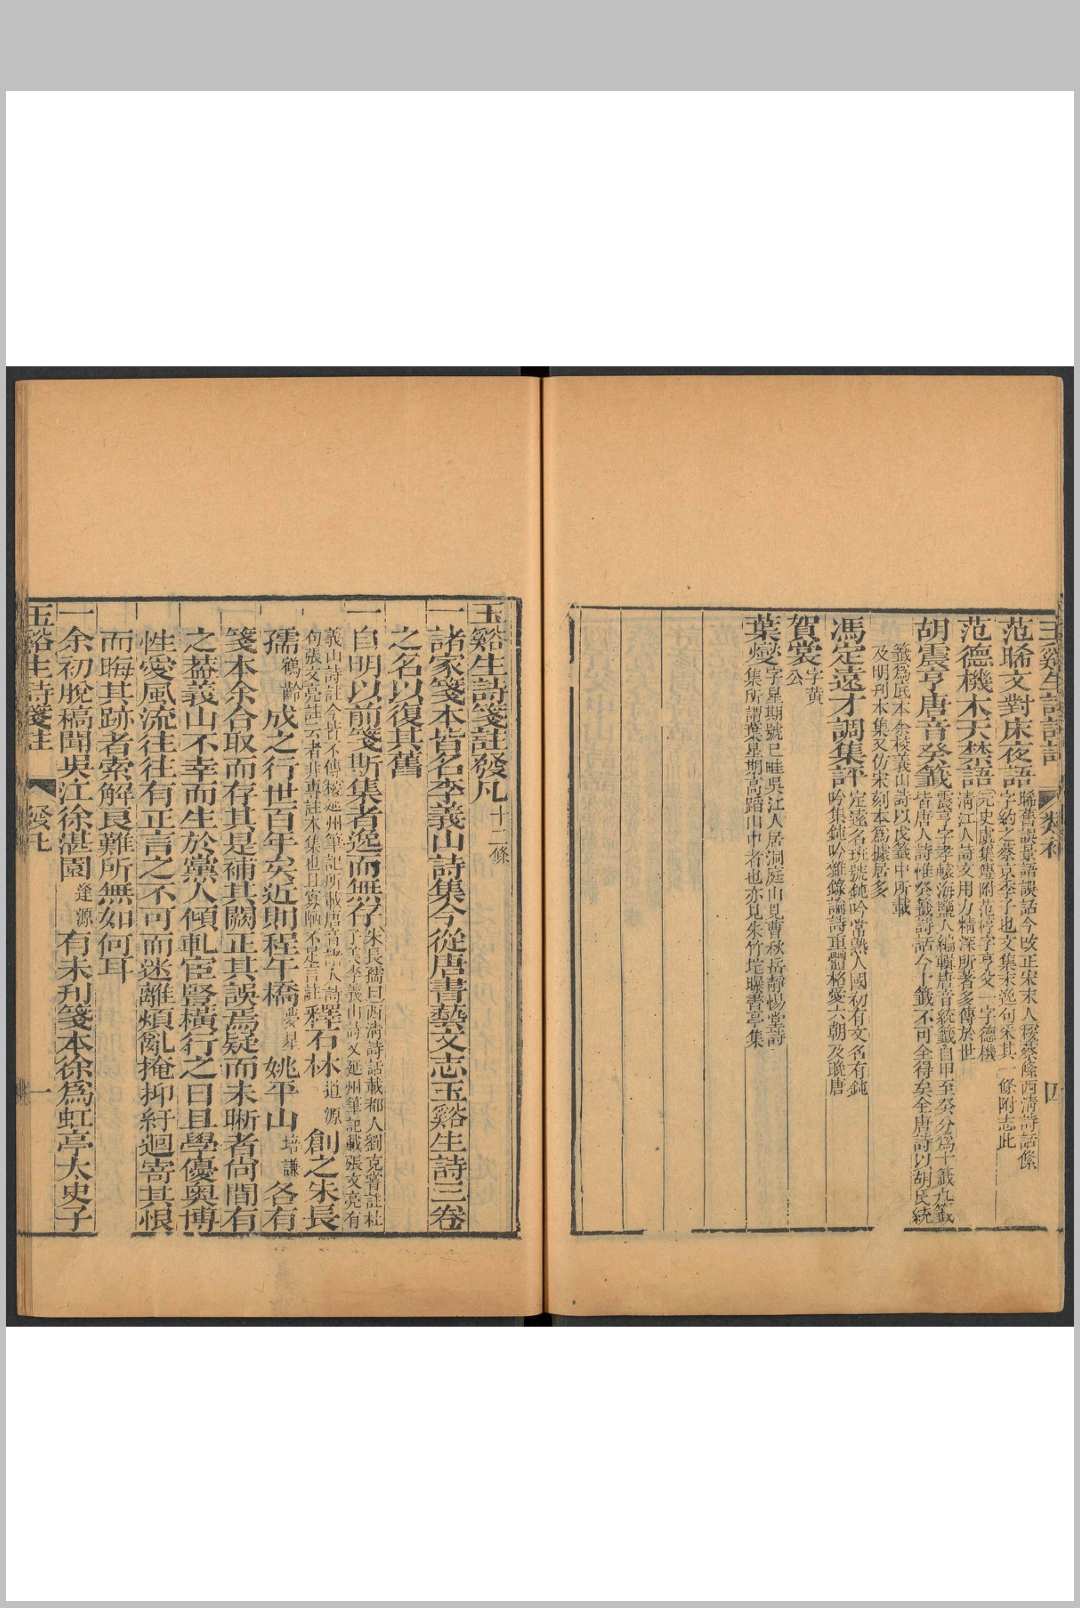 范晞文對床夜語
晞舊誤景語誤話今改正宋末人按蔡絛西清詩話絛
字約之蔡京季子也文集未逸句采其一條附志此
范德機木天禁語
元史虞集傳附范梈字亨父一字德機
清江人詩文用力精深所著多傳於世
胡震亨唐音癸籤
震亨字孝轅海鹽人編輯唐音統籤自甲至癸分為十籤九籤
皆唐人詩惟癸籤詩話今十籤不可全得矣全唐詩以胡氏統
籤為底本余校義山詩以戊籤中所載
及明刊本集又仿宋刻本為據居多
馮定遠才調集評
定遠名班號鈍吟常熟人國初有文名有鈍
吟集鈍吟雜錄論詩重體格愛六朝及晚唐
賀裳
字黃
公
葉燮
字星期號已畦吳江人居洞庭山見曹秋岳靜惕堂詩
集所謂葉星期高蹈山中者也亦見朱竹垞曝書亭集
玉谿生詩箋註發凡十二條
一諸家箋本皆名李義山詩集今從唐書藝文志玉谿生詩三卷
之名以復其舊
一自明以前箋斯集者逸而無存
朱長孺曰西清詩話載都人劉克嘗註杜
子美李義山詩又延州筆記載張文亮有
義山詩註今皆不傳按延州筆記所載唐
句張文亮註云者非專註本集也且寡陋不足言註
釋石林
道源
創之朱長
孺
鶴齡
成之行世百年矣近則程午橋
夢星
姚平山
培謙
各有
箋本余合取而存其是補其闕正其誤焉疑而未晰者尙閒有
之葢義山不幸而生於黨人傾軋宦豎橫行之日且學優奧博
性愛風流往往有正言之不可而迷離煩亂掩抑紆迴寄其恨
而晦其跡者索解良難所無如何耳
一余初脫稿聞吳江徐湛園
逢源
有未刋箋本徐爲虹亭太史子
玉谿生詩箋註
發凡
一